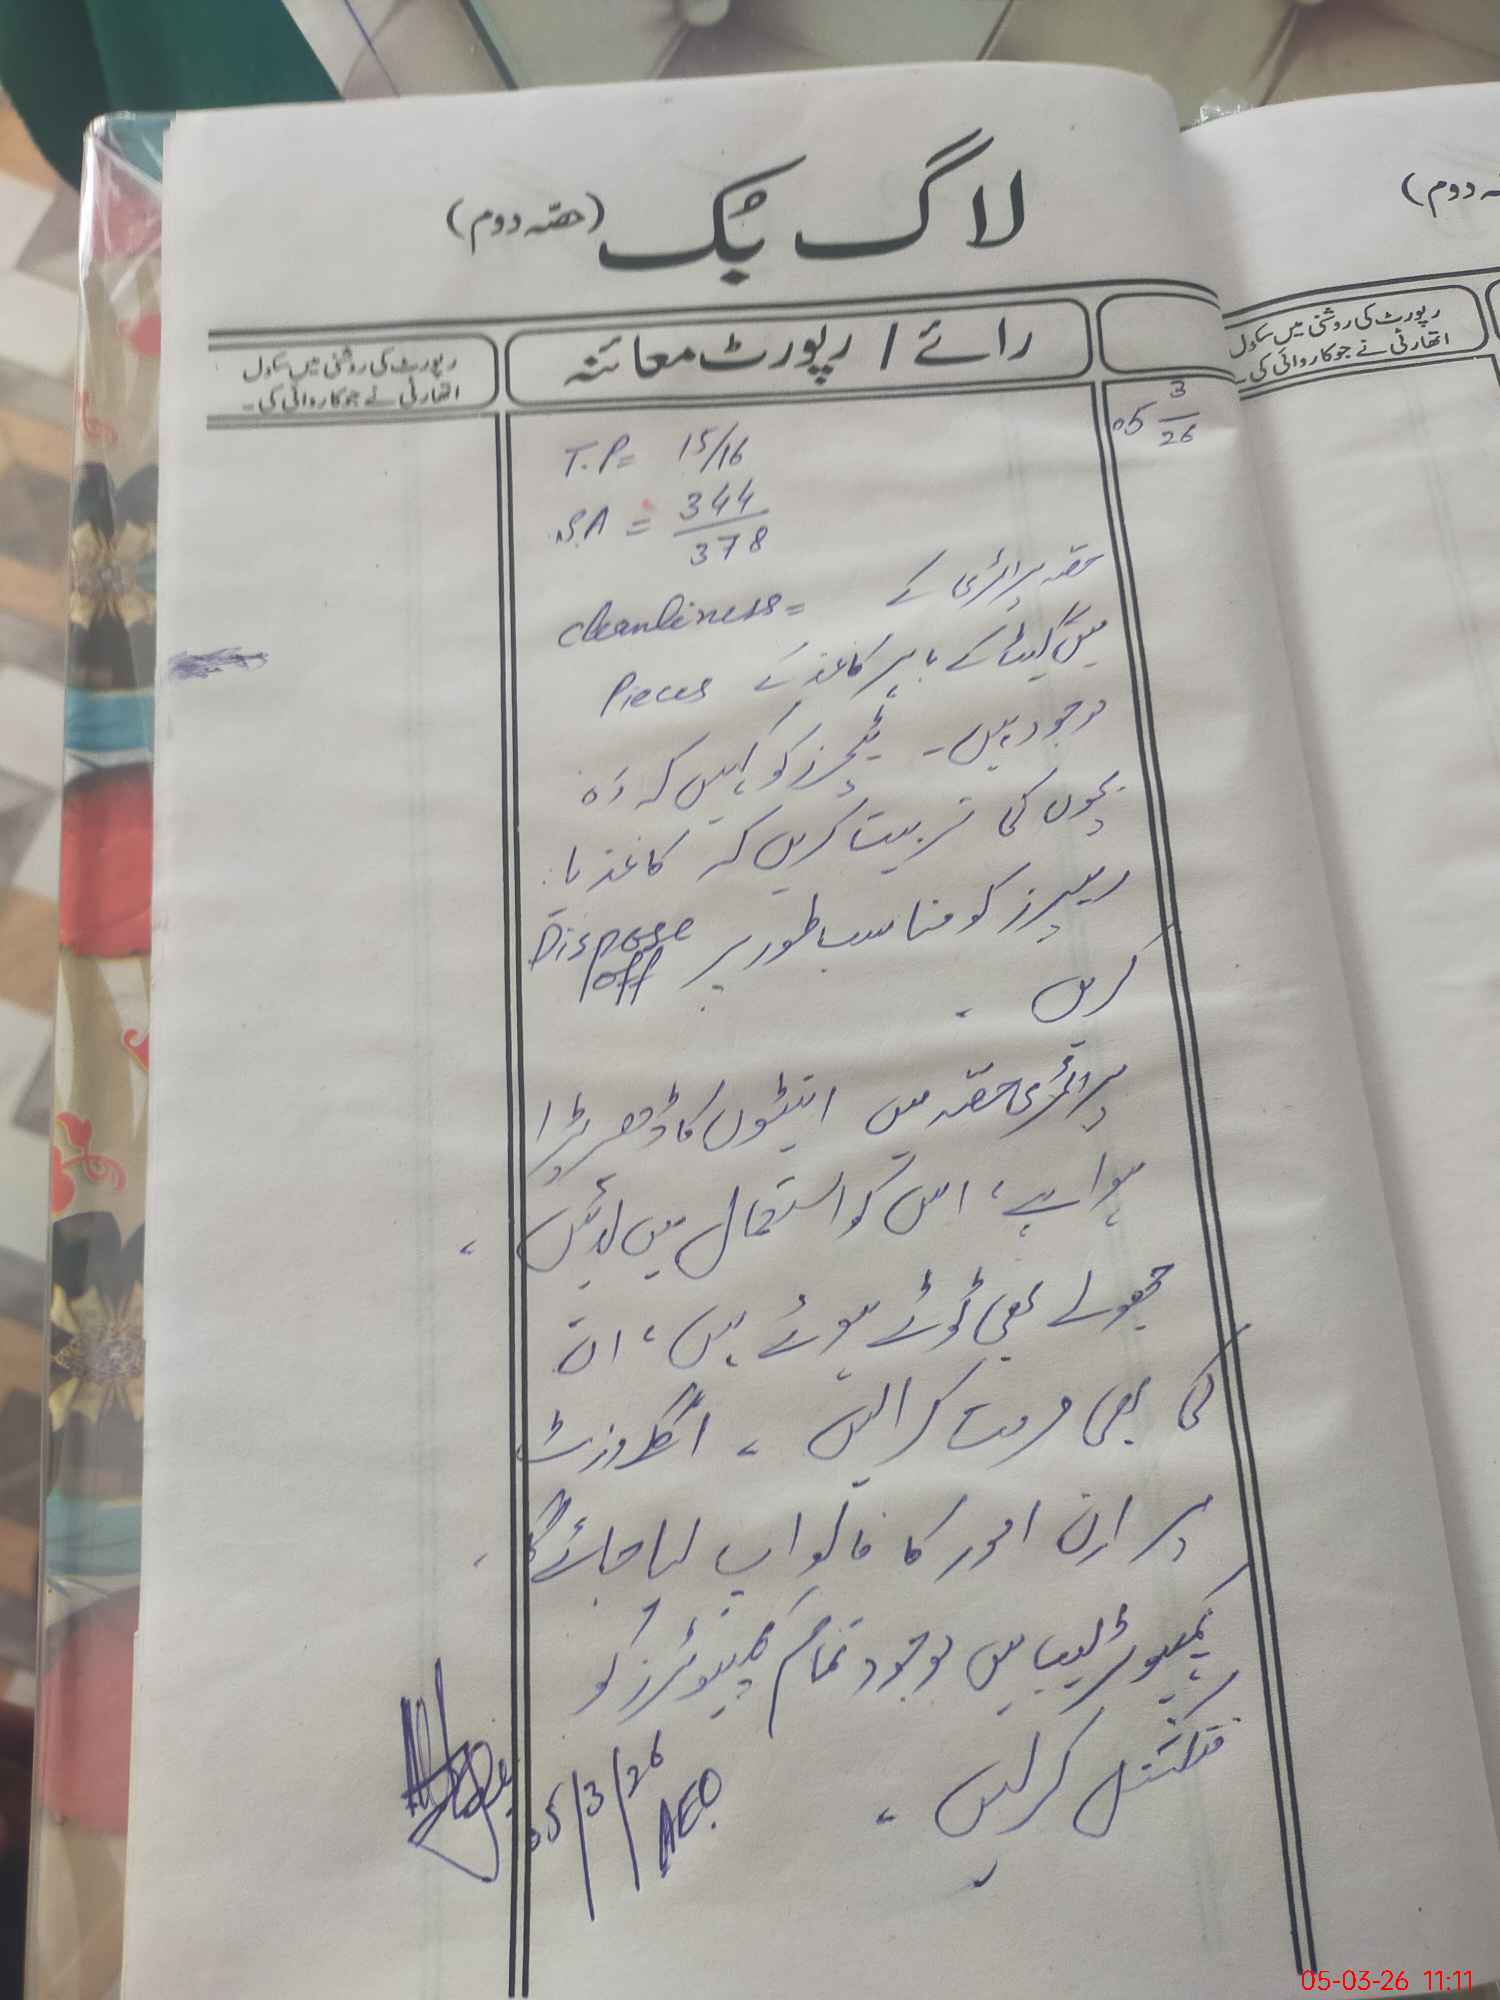 لاگ بُک (حصّہ دوم)
رائے / رپورٹ معائنہ
رپورٹ کی روشنی میں سکول
اتھارٹی نے جو کاروائی کی۔
05 3/26
T.P = 15/16
S.A = 344/378
Cleanliness = حصہ پرائمری کے
مین گیٹ کے باہر کاغذ کے Pieces
موجود ہیں۔ ٹیچرز کو کہیں کہ وہ
بچوں کی تربیت کریں کہ کاغذ یا
ریپرز کو مناسب طور پر Dispose off
کریں ۔
پرائمری حصّہ میں اینٹوں کا ڈھیر پڑا
ہوا ہے، اس کو استعمال میں لائیں ۔
جھولے بھی ٹوٹے ہوئے ہیں، ان
کی بھی مرمت کرالیں ۔ اگلے وزٹ
پر ان امور کا فالو اپ لیا جائے گا ۔
کمپیوٹر لیب میں موجود تمام کمپیوٹرز کو
فنکشنل کرلیں ۔
05/3/26
AEO
دوم)
رپورٹ کی روشنی میں سکول
اتھارٹی نے جو کاروائی کی۔
05-03-26 11:11